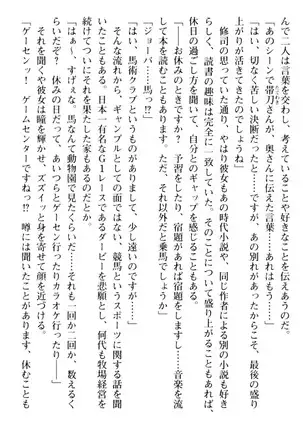 んで二人は言葉を交わし、考えていることや好きなことを伝えあう。
「あのシーンで帯刀さんが、奥さんに伝えた言葉……あれはもう……」
「はい、切なく苦しい決断だったと……ですが、あの別れがあったからこそ、最後の盛り
上がりが活きてきたのでしょうね」
修司の思っていた通り、やはり彼女もあの時代小説や、同じ作者による別の小説も好き
らしく、読書の趣味は完全に一致していた。そのことについて盛り上がることもあれば、
休日の過ごし方を聞いて、自分とのギャップを感じることもある。
「――お休みのときですか？　予習をしたり、宿題があれば宿題をしますし……音楽を流
して本を読むこともあります。ただ、それ以外だと乗馬でしょうか」
「ジョーバ……馬っ!?」
「はい、馬術クラブというものがありまして、少し遠いのですが……」
そんな流れから、ギャンブルとしての面ではない、競馬というスポーツに関する話を聞
いたこともある。日本一有名なＧ１レースであるダービーを悲願とし、何代も牧場経営を
続けてきて、それを果たした家もあるのだとか。
「はぁー、すげぇな。馬なんて動物園で見たくらいだ……それも一回か二回か、数えるく
らいだぞ？　休みの日だって、あいつらとゲーセン行ったりカラオケ行ったり――」
それを聞くや彼女は瞳を輝かせ、ズズイッと身を寄せて顔を近づける。
「ゲーセンッ！　ゲームセンターですねっ!?　噂には聞いたことがあります、休むことも